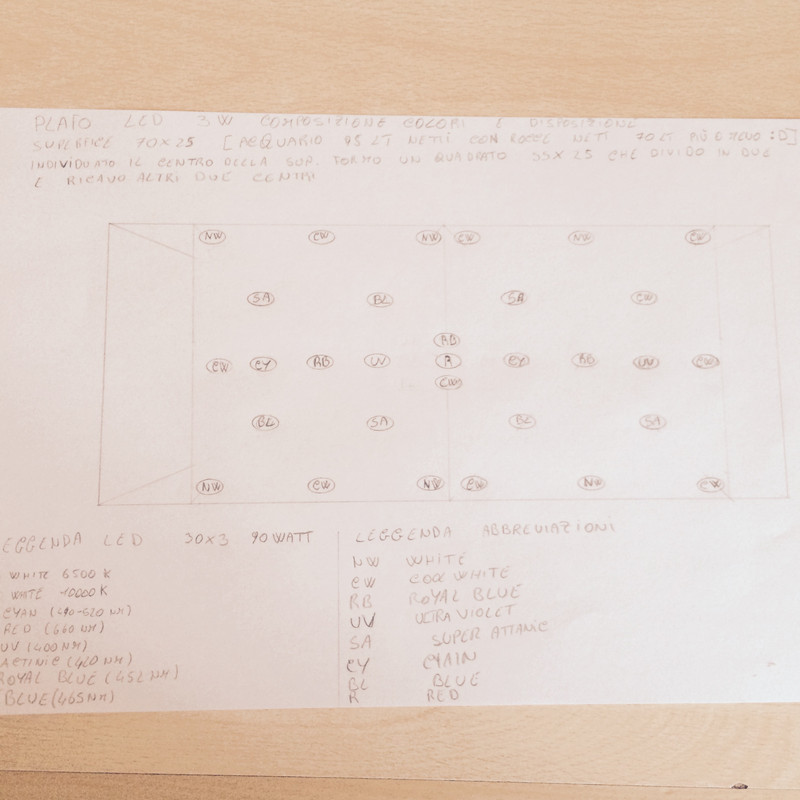 PLAFO LED 3W COMPOSIZIONE COLORI E DISPOSIZIONE
SUPERFICE 70X25 [ACQUARIO 95 LT NETTI CON ROCCE NETTI 70 LT :D]
INDIVIDUATO IL CENTRO DELLA SUP. FORMO UN QUADRATO 55X25 CHE DIVIDO IN DUE
E RICAVO ALTRI DUE CENTRI
NW CW NW CW NW CW
SA BL SA CW
RB
CW CY RB UV R CY RB UV CW
CW
BL SA BL SA
NW CW NW CW NW CW
EGGENDA LED 30X3 90WATT
WHITE 6500K
WHITE 10000K
CYAN (490-520 NM)
RED (660 NM)
UV (400NM)
ACTINIC (420 NM)
ROYAL BLUE (452 NM)
BLUE (465NM)
LEGGENDA ABBREVIAZIONI
NW WHITE
CW COOL WHITE
RB ROYAL BLUE
UV ULTRAVIOLET
SA SUPER ATTANIC
CY CYAIN
BL BLUE
R RED